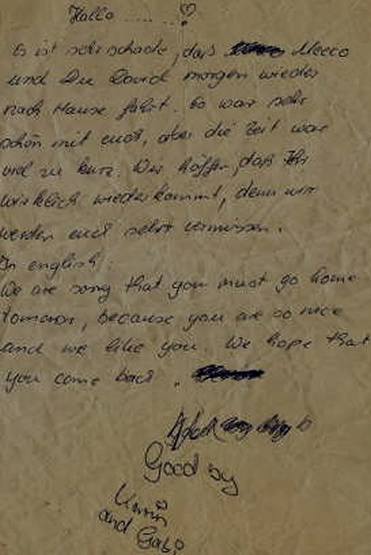 Hallo ........ ♡
Es ist sehr schade, daß Mecco
und Du David morgen wieder
nach Hause fahrt. Es war sehr
schön mit euch, aber die Zeit war
viel zu kurz. Wir hoffen, daß Ihr
wirklich wiederkommt, denn wir
werden euch sehr vermissen.
In english:
We are sorry that you must go home
tomorow, because you are so nice
and we like you. We hope that
you come back.
Good by
and Gabi